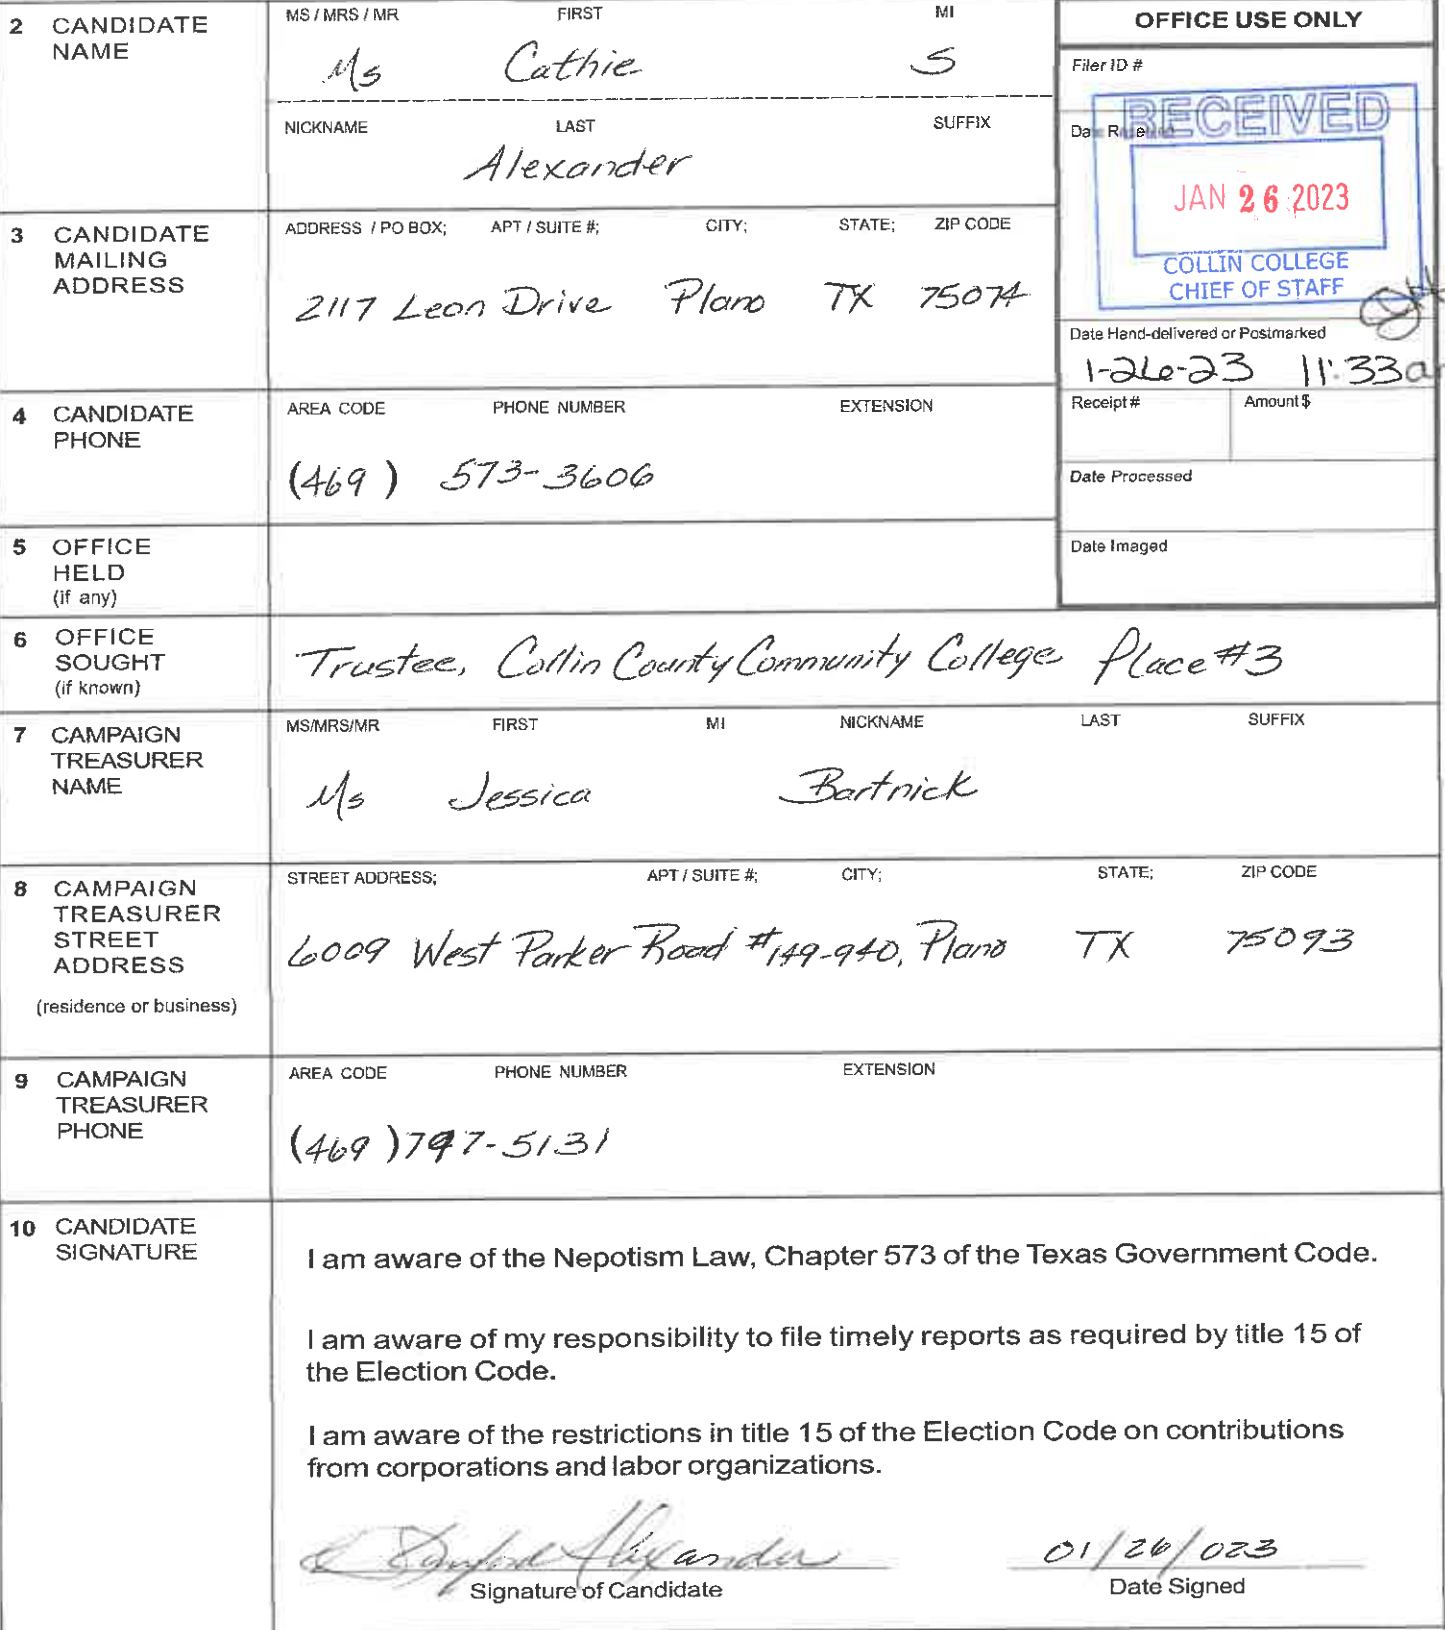 2 CANDIDATE NAME
MS / MRS / MR FIRST MI
Ms Cathie S
NICKNAME LAST SUFFIX
Alexander
OFFICE USE ONLY
Filer ID #
Date Received
RECEIVED
JAN 26 2023
COLLIN COLLEGE
CHIEF OF STAFF
Date Hand-delivered or Postmarked
1-26-23 11:33a
Receipt # Amount $
Date Processed
Date Imaged
3 CANDIDATE MAILING ADDRESS
ADDRESS / PO BOX; APT / SUITE #; CITY; STATE; ZIP CODE
2117 Leon Drive Plano TX 75074
4 CANDIDATE PHONE
AREA CODE PHONE NUMBER EXTENSION
(469) 573-3606
5 OFFICE HELD (if any)
6 OFFICE SOUGHT (if known)
Trustee, Collin County Community College Place #3
7 CAMPAIGN TREASURER NAME
MS/MRS/MR FIRST MI NICKNAME LAST SUFFIX
Ms Jessica Bartnick
8 CAMPAIGN TREASURER STREET ADDRESS
(residence or business)
STREET ADDRESS; APT / SUITE #; CITY; STATE; ZIP CODE
6009 West Parker Road #149-940, Plano TX 75093
9 CAMPAIGN TREASURER PHONE
AREA CODE PHONE NUMBER EXTENSION
(469) 797-5131
10 CANDIDATE SIGNATURE
I am aware of the Nepotism Law, Chapter 573 of the Texas Government Code.
I am aware of my responsibility to file timely reports as required by title 15 of
the Election Code.
I am aware of the restrictions in title 15 of the Election Code on contributions
from corporations and labor organizations.
Alexander 01/26/023
Signature of Candidate Date Signed